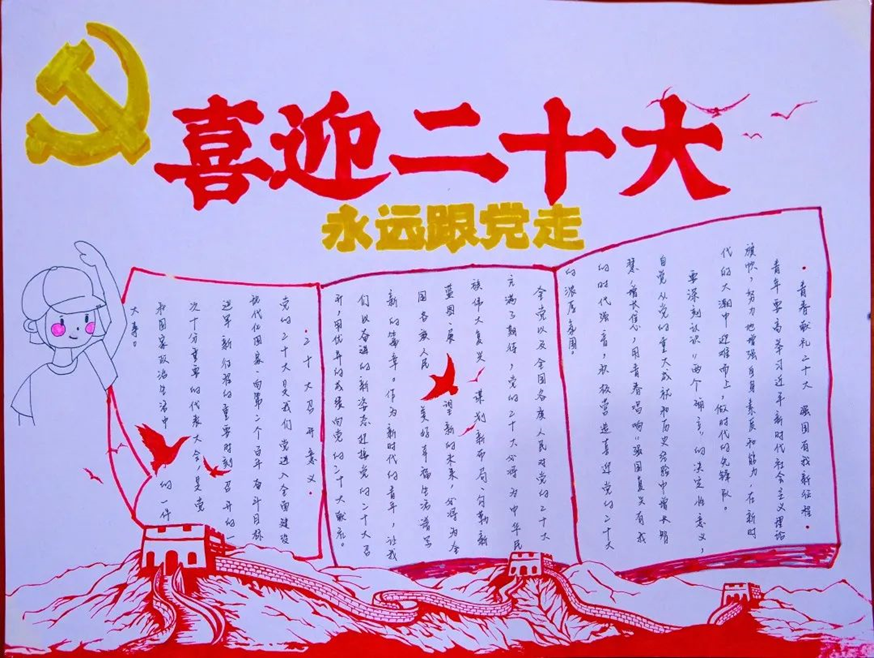 喜迎二十大
永远跟党走
·青春献礼二十大 强国有我新征程·
青年要高举习近平新时代社会主义理论
旗帜,努力地增强自身素质和能力,在新时
代的大潮中迎难而上,做时代的先锋队。
要深刻认识“两个确立”的决定性意义,
自觉从党的重大成就和历史经验中增长智
慧、增长信心,用青春唱响“强国复兴有我
的时代强音,积极营造喜迎党的二十大
的浓厚氛围。
全党以及全国各族人民对党的二十大
充满了期待,党的二十大必将为中华民
族伟大复兴 谋划新布局、勾勒新
蓝图、展 望新的未来,必将为全
国各族人民 美好幸福生活谱写
新的篇章。作为新时代的青年,让我
们以奋进的新姿态迎接党的二十大召
开,用优异的成绩向党的二十大献礼。
·二十大召开意义·
党的二十大是我们党进入全面建设
现代化国家、向第二个百年奋斗目标
进军新征程的重要时刻召开的一
次十分重要的代表大会,是党
和国家政治生活中 的一件
大事。